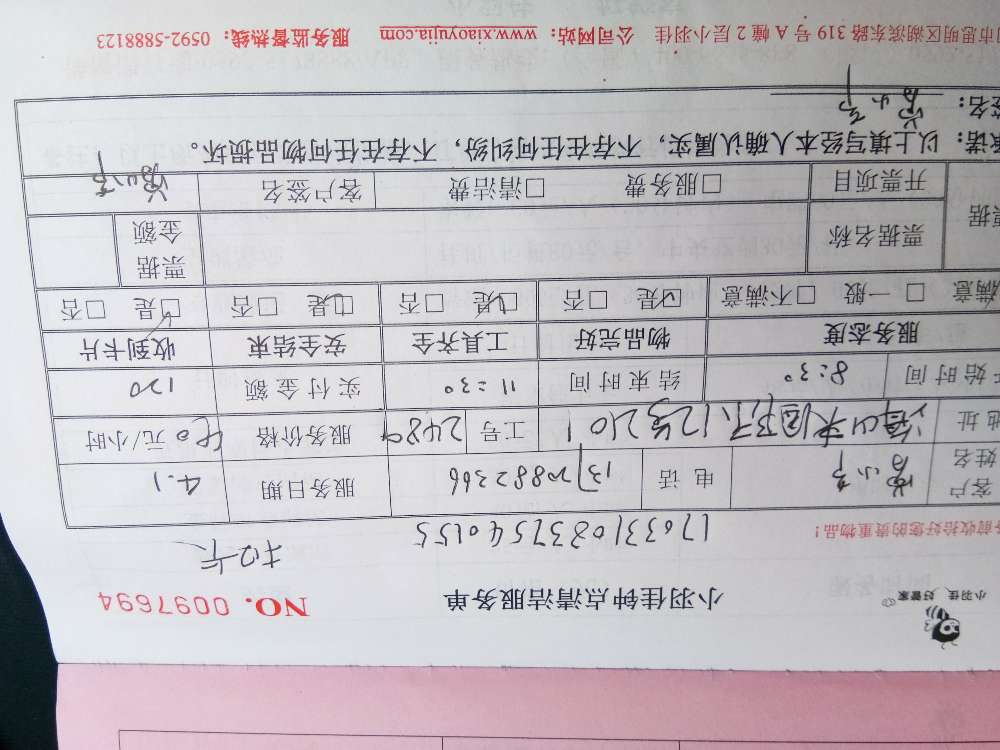 小羽佳 好管家
小羽佳钟点清洁服务单 NO. 0097694
扣卡
前收拾好您的贵重物品！
17033108375540155
客户姓名 电话 13720882366 服务日期 4.1
地址 12号201 工号 2489 服务价格 40元/小时
始时间 8:30 结束时间 11:30 实付金额 120
服务态度 物品完好 工具齐全 安全结束 收到卡片
满意 □一般 □不满意 □是 □否 □是 □否 □是 □否 □是 □否
票据 票据名称 票据金额
开票项目 □服务费 □清洁费 客户签名
承诺：以上填写经本人确认属实，不存在任何纠纷，不存在任何物品损坏。
签名：
市思明区湖滨东路 319 号 A 幢 2 层小羽佳 公司网站：www.xiaoyujia.com 服务监督热线：0592-5888123